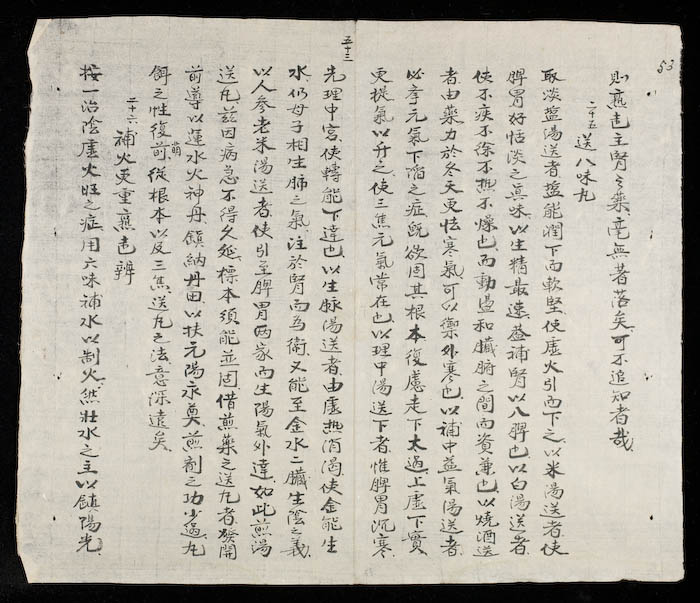 53
則燕色主腎之藥毫無著落矣可不追知者哉
二十五 送八味丸
取淡盐湯送者盐能潤下而軟堅使虛火引而下之以米湯送者使
脾胃好恬淡之真味以生精最速益補腎以八脾也以白湯送者
使不疾不徐不热不燥也而動盪和臟腑之間而資兼也以燒酒送
者由藥力於冬天更怯寒氣可以禦外寒也以補中益氣湯送者
必李元氣下陷之症既欲固其根本復慮走下太過上虛下實
更提氣以升之使三焦元氣常在也以理中湯送下者惟脾胃沉寒
五十三
先理中宮使轉能下達也以生脉湯送者由虛热消渴使金能生
水仍母子相生肺之氣注於腎而為衛又能至金水二臟生陰之義
以人參老米湯送者使引至脾胃两家而生陽氣外達如此煎湯
送丸茲因病急不得久延標本須能並固借煎藥之送丸者發開
前導以運水火神丹鎮納丹田以扶元陽永奠煎剂之功少過丸
餌之性復前萌從根本以反三焦送丸之法意深遠矣
二十六 補火更重燕色辨
按一治陰虛火旺之症用六味補水以制火然壯水之主以鎮陽光